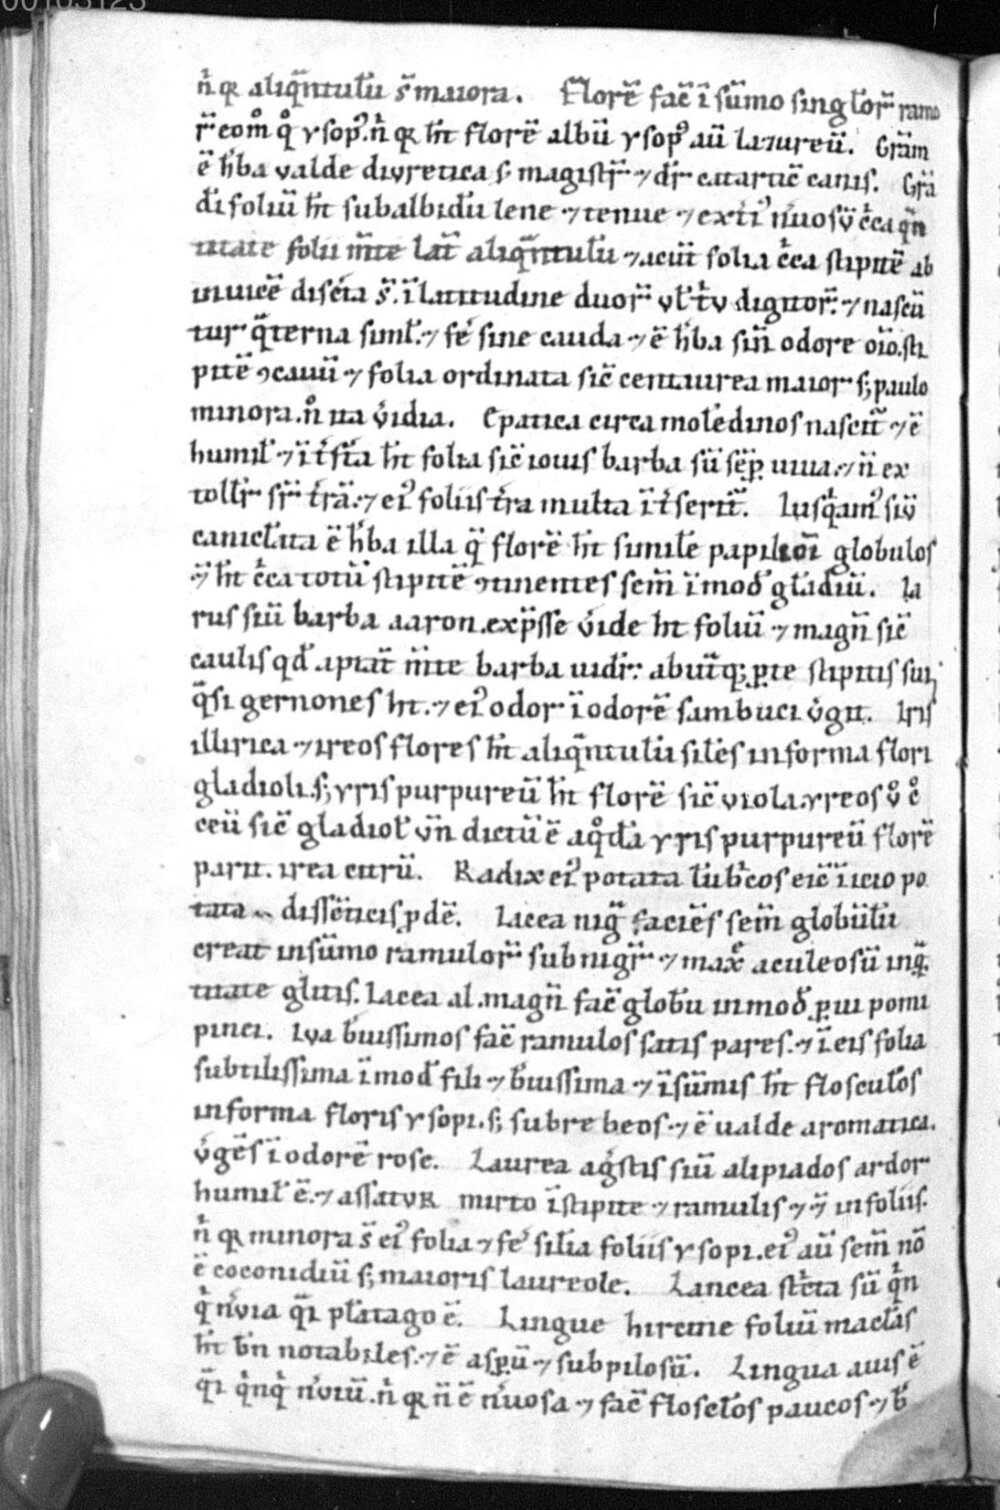 00103123
n̄ qͥ aliq̄ntulū s̄ maiora. Florē fac̄ ī sūmo singlor̄ ramo
r̄ eom̊ q̊ ysop̉. n̄ qͥ h̄t florē albū ysop̉ aū lazureū. Grām
ē h̓ba valde diuretica s; magistr̄ ⁊ dr̄ catartic̄ canis. Grā
dī foliū h̄t subalbidū lene ⁊ tenue ⁊ nuosū c̄ca q̄n
titate folii m̄te lat̄ aliq̄ntulū ⁊ acūt folia c̄ca stipitē ab
inuicē discīa s̄. ī latitudine duor̄ vl̄ t̓v digitor̄. ⁊ nascū
tur q̄terna siml̄. ⁊ fe̓ sine cauda ⁊ ē h̓ba sin̄ odore oīo. sti
pitē ꝯcauū ⁊ folia ordinata sic̄ centaurea maior s; paulo
minora. n̊ ita v̓idia. Epatica circa molēdinos nascit̄ ⁊ ē
humil̄ ⁊ h̄t folia sic̄ iouis barba sū sēp uiua. ⁊ n̄ ex
tollr̄ sr̄ t̓rā. ⁊ ei̓ foliis t̓ra multa ī t̓serit̄. Iusq̓am̓ siū
canicl̄ata ē h̓ba illa q̄ florē h̄t similē globulos
q̄ h̄t c̄ca totū stipitē ꝯtinentes sem̄ ī mod̄ gladiū. Ia
rus siū barba aaron. exp̄sse v̓ide h̄t foliū ⁊ magn̄ sic̄
caulis qd̄ apiat̄ m̄te barba uidr̄. abutq; ꝑte stipitis sui
q̄si gernones h̄t. ⁊ ei̓ odor ī odorē sambuci v̓git. Iris
illirica ⁊ ireos flores h̄t aliq̄ntulū sil̄es in forma flori
gladioli. s; yris purpureū h̄t florē sic̄ viola. yreos v̊ c̊
ceū sic̄ gladiol̄ vn̄ dictū ē a q̊dā yris purpureū florē
parit. irea citrū. Radix ei̓ potata eic̄ ī icio po
tata disse̓ticis ꝓdē. Iacea niḡ faciēs sem̄ globūlū
creat in sūmo ramulor̄ subnigr̄ ⁊ max̊ aculeosū in q̄
titate glutis. Iacea al. magn̄ fac̄ globū in mod̄ ꝑui pomi
pinei. Iua b̓uissimos fac̄ ramulos satis pares. ⁊ ī eis folia
subtilissima ī mod̄ fili ⁊ b̓uissima ⁊ ī sūmis h̄t floscul̄os
in forma floris ysopi. s; subrebeos. ⁊ ē ualde aromatica.
v̓gēs ī odorē rose. Laurea ag̓stis siū alipiados ardor
humil̄ ē. ⁊ assatvr mirto ī stipite ⁊ ramulis ⁊ q̄ in foliis.
n̄ qͥ minora s̄ ei̓ folia ⁊ fe̓ sil̄ia foliis ysopi. ei̓ aū sem̄ nō
ē coconidiū s; maioris laureole. Lancea stc̄ta sū q̓n
q̓ n̓uia q̄i plātago ē. Lingue hircine foliū macl̄as
h̄t bn̄ notabiles. ⁊ ē aspū ⁊ subpilosū. Lingua auis ē
q̄i q̓nq̓ n̓uiū. n̄ qͥ n̄ ē n̓uosa ⁊ fac̄ floscl̄os paucos ⁊ b̓